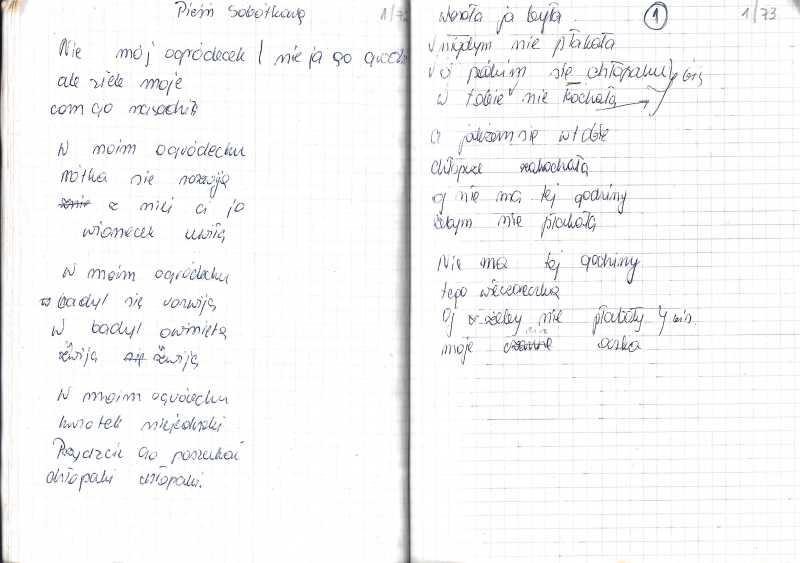 Pieśń Sobótkowa 1/73
Nie mój ogródecek / nie ja go
ale ziele moje
com go nasadził
W moim ogródecku
nie
z niej ci jo
wianecek uwiła
W moim ogródecku
badyl się
W badyl owinięta
żmija żmija
W moim ogródecku
kwiatek niejedniuśki
go poszukać
chłopaki chłopaki.
1 1/73
ja była
nigdym nie płakała
się chłopaku bis
w tobie nie kochała
A jakżem się w tobie
chłopce zakochała
oj nie ma tej godziny
żebym nie płakała
Nie ma tej godziny
tego wieczoreczka
Oj żeby nie płakały bis
moje ocka